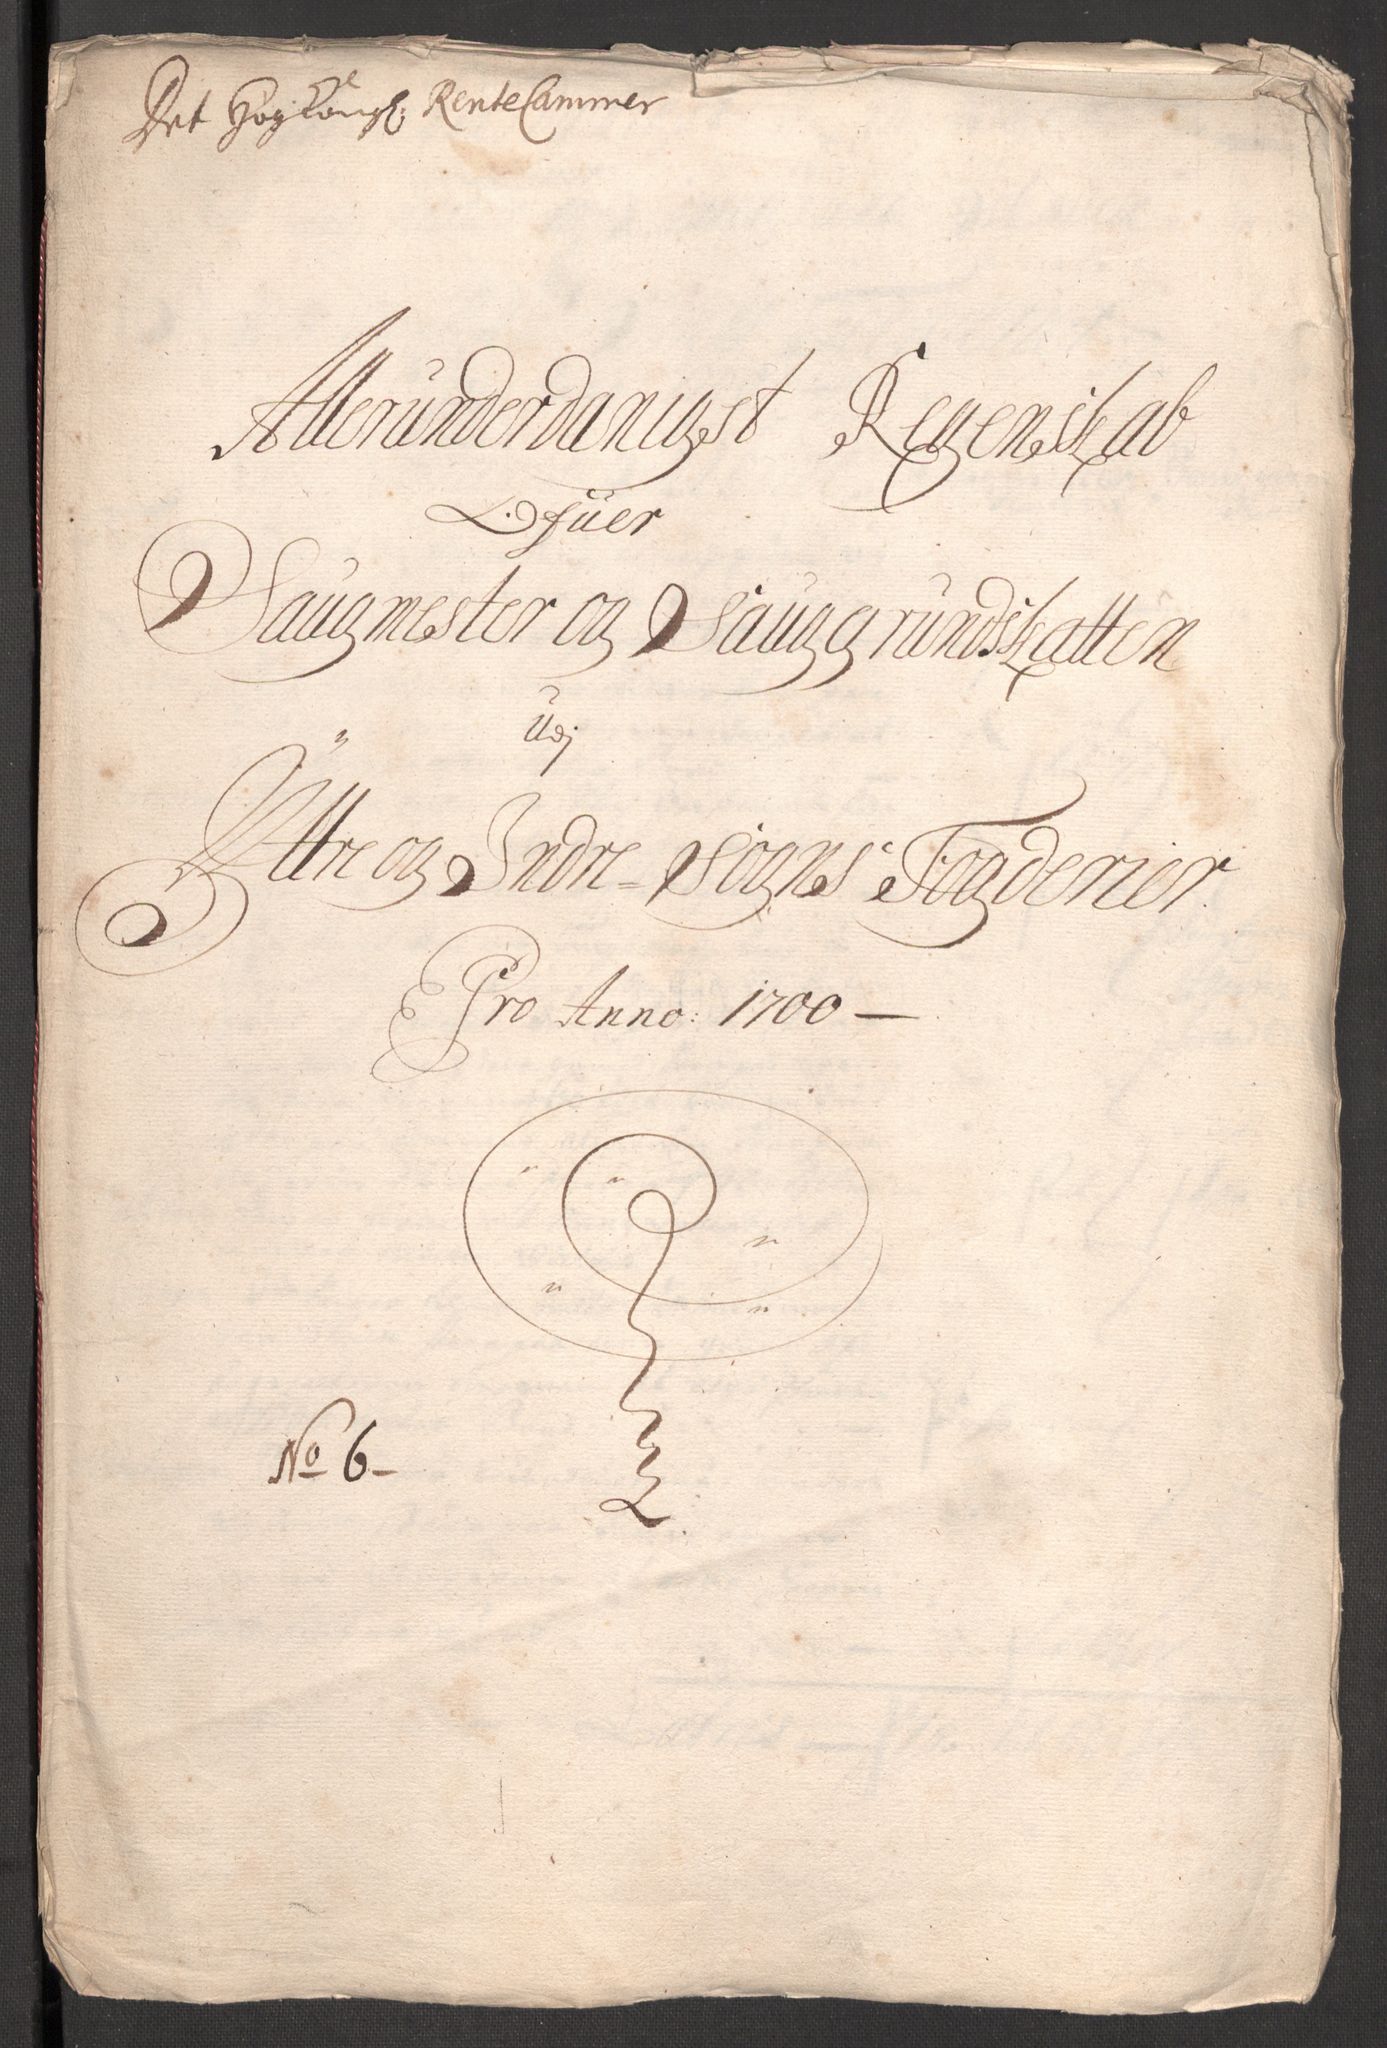 Det Høy Kongl: RenteCammer
Allerúnderdanigst Regenskab
Ofúer
Saúgmester og Saúggrúndskatten
Udj
Ÿttre og Indre = Sogns Fogderier.
Pro Anno: 1700 —
No 6 –